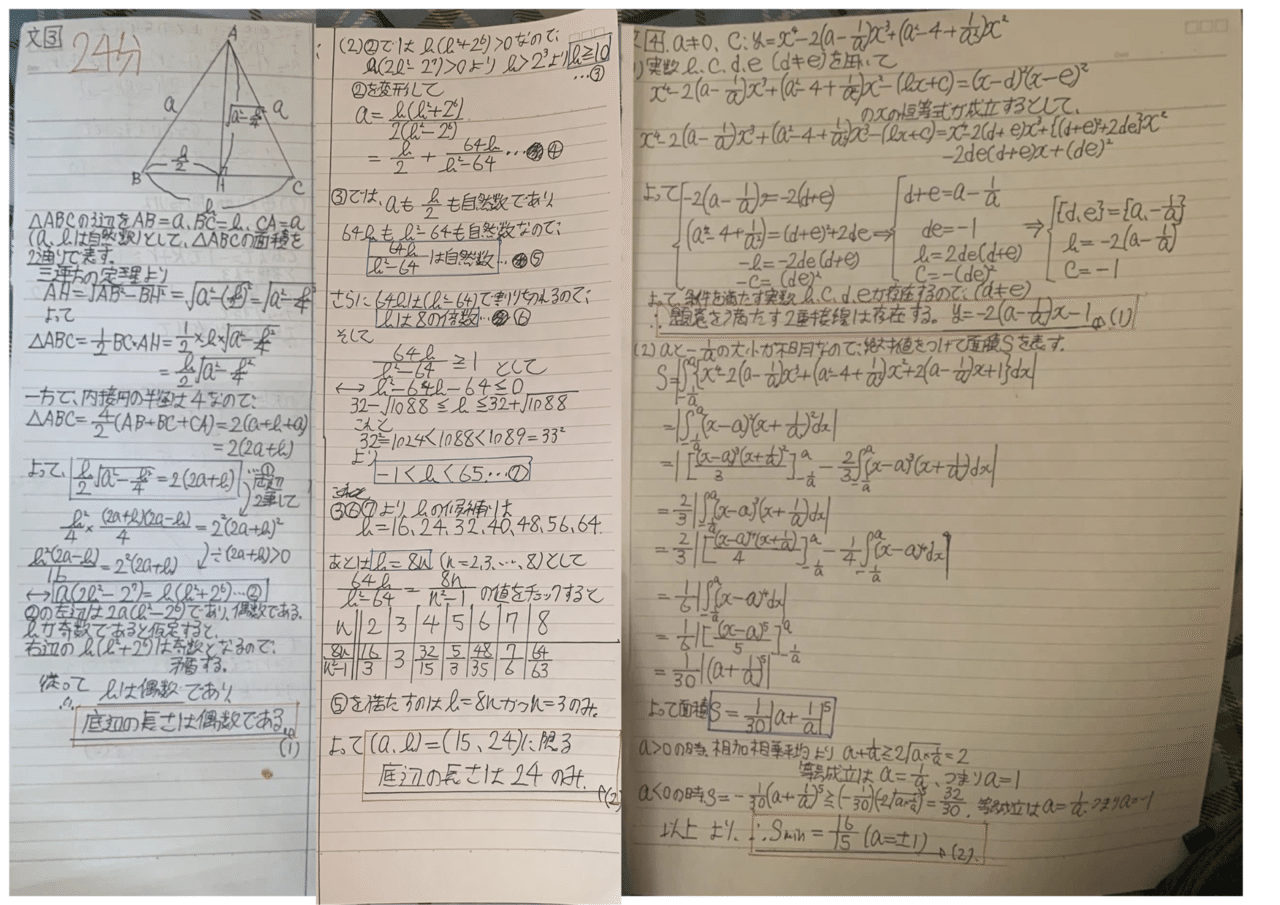 文3
24分
A
a
a
√a²-h²/4
h/2
B
H
C
h
△ABCの3辺をAB=a、BC=h、CA=a
(a、hは自然数)として、△ABCの面積を
2通りで表す。
三平方の定理より
AH=√AB²-BH²=√a²-(h/2)²=√a²-h²/4
よって
△ABC=1/2BC×AH=1/2×h×√a²-h²/4
=h/2√a²-h²/4
一方で、内接円の半径は4なので、
△ABC=4/2(AB+BC+CA)=2(a+h+a)
=2(2a+h)
よって、h/2√a²-h²/4=2(2a+h) …①
両辺2乗して
h²/4×(2a+h)(2a-h)/4=2²(2a+h)²
h²(2a-h)/16=2²(2a+h) ÷(2a+h)>0
↔a(2h²-2⁷)=h(h²+2⁶)…②
②の左辺は2a(h²-2⁶)であり、偶数である。
hが奇数であると仮定すると、
右辺のh(h²+2⁶)は奇数となるので、
矛盾する。
従って hは偶数であり、
∴底辺の長さは偶数である。
(1)
(2)②ではh(h²+2⁶)>0なので、
a(2h²-2⁷)>0より h>2³より h≧10
…③
②を変形して
a=h(h²+2⁶)/2(h²-2⁶)
=h/2+64h/h²-64…④
③では、aもh/2も自然数であり、
64hもh²-64も自然数なので、
64h/h²-64は自然数…⑤
さらに64hは(h²-64)で割りきれるので、
hは8の倍数…⑥
そして
64h/h²-64≧1 として
↔h²-64h-64≦0
32-√1088≦h≦32+√1088
これと
32²=1024<1088<1089=33²
より
-1<h<65…⑦
③⑥⑦より、hの候補は
h=16、24、32、40、48、56、64.
あとはh=8n (n=2、3、…、8)として
64h/h²-64=8n/n²-1の値をチェックすると
n 2 3 4 5 6 7 8
8n/n²-1 16/3 3 32/15 5/3 48/35 7/6 64/63
⑤を満たすのはh=8nかつn=3のみ。
よって(a、h)=(15、24)に限る
底辺の長さは24のみ。
(2)
4. a≠0、C:y=x⁴-2(a-1/a)x³+(a²-4+1/a²)x²
1)実数h、c、d、e (d≠e)を用いて
x⁴-2(a-1/a)x³+(a²-4+1/a²)x²-(hx+c)=(x-d)²(x-e)²
のxの恒等式が成立するとして、
x⁴-2(a-1/a)x³+(a²-4+1/a²)x²-(hx+c)=x⁴-2(d+e)x³+{(d+e)²+2de}x²
-2de(d+e)x+(de)²
よって -2(a-1/a)=-2(d+e)
(a²-4+1/a²)=(d+e)²+2de
-h=-2de(d+e)
-c=(de)²
⇒ d+e=a-1/a
de=-1
h=2de(d+e)
c=-(de)²
⇒ {d、e}={a、-1/a}
h=-2(a-1/a)
c=-1
よって、条件を満たす実数h、c、d、eが存在するので、(d≠e)
∴題意を満たす2重接線は存在する。y=-2(a-1/a)x-1 (1)
(2)aと-1/aの大小が不明なので、絶対値をつけて面積Sを表す。
S=|∫{x⁴-2(a-1/a)x³+(a²-4+1/a²)x²+2(a-1/a)x+1}dx|
=|∫(x-a)²(x+1/a)²dx|
=|[(x-a)³(x+1/a)²/3]-2/3∫(x-a)³(x+1/a)dx|
=2/3|∫(x-a)³(x+1/a)dx|
=2/3|[(x-a)⁴(x+1/a)/4]-1/4∫(x-a)⁴dx|
=1/6|∫(x-a)⁴dx|
=1/6|[(x-a)⁵/5]|
=1/30|(a+1/a)⁵|
よって面積S=1/30|a+1/a|⁵
a>0の時、相加相乗平均より a+1/a≧2√a×1/a=2
等号成立はa=1/a、つまりa=1
a<0の時、S=-1/30(a+1/a)⁵≧(-1/30)(-2√a×1/a)⁵=32/30. 等号成立はa=1/a つまりa=-1
以上より、∴Smin=16/15 (a=±1) (2).